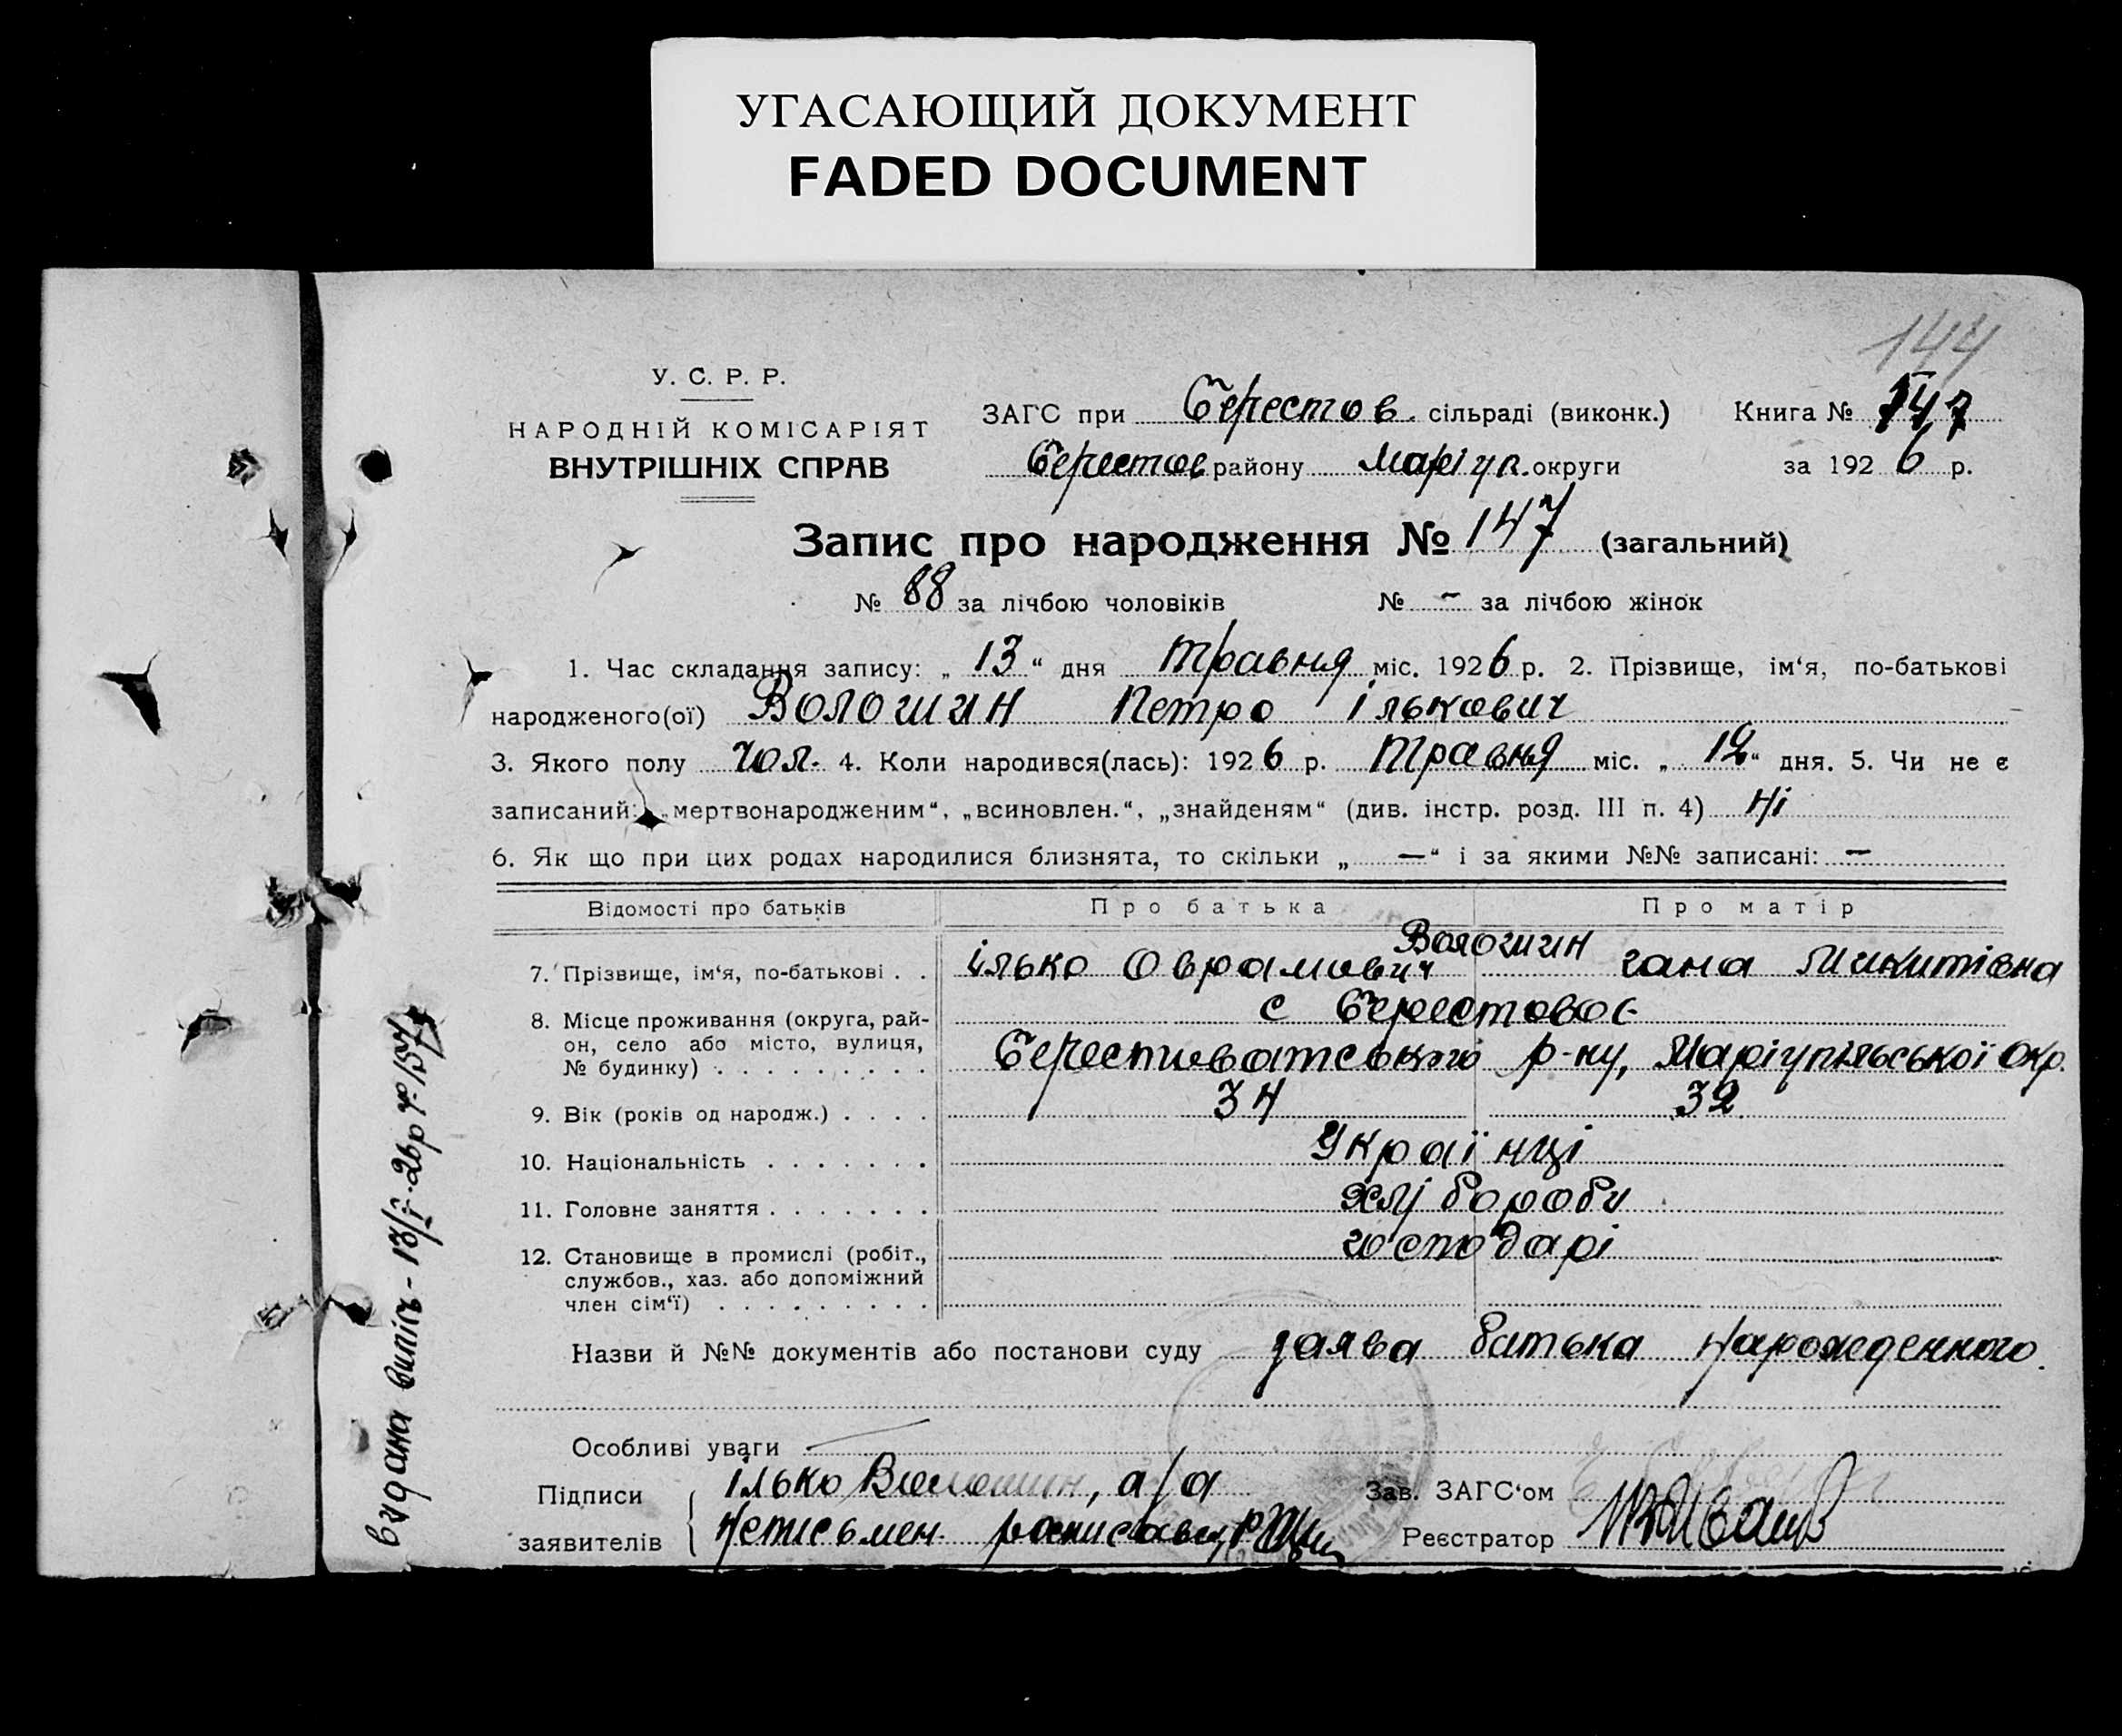 УГАСАЮЩИЙ ДОКУМЕНТ
FADED DOCUMENT
144
У. С. Р. Р.
НАРОДНІЙ КОМІСАРІЯТ
ВНУТРІШНІХ СПРАВ
ЗАГС при Берестов. сільраді (виконк.) Книга № 147
Берестов району Маріуп. округи за 1926 р.
Запис про народження № 147 (загальний)
№ 88 за лічбою чоловіків № - за лічбою жінок
1. Час складання запису: „ 13 “ дня травня міс. 1926 р. 2. Прізвище, ім‘я, по-батькові
народженого(ої) Волошин Петро Ількович
3. Якого полу чол. 4. Коли народився(лась): 1926 р. травня міс. „ 12 “ дня. 5. Чи не є
записаний: „мертвонародженим“, „всиновлен.“, „знайденям“ (див. інстр. розд. III п. 4) Ні
6. Як що при цих родах народилися близнята, то скільки „ — “ і за якими №№ записані: —
Відомості про батьків Про батька Про матір
Волошин
7. Прізвище, ім‘я, по-батькові . . Ілько Оврамович гана Микитівна
8. Місце проживання (округа, рай-
он, село або місто, вулиця,
№ будинку) . . . . . . . . .
с Берестовоє
Берестоватського р-ну, Маріупільської окр.
9. Вік (років од народж.) . . . . 34 32
10. Національність . . . . . . . Українці
11. Головне заняття . . . . . . . хліборобу
12. Становище в промислі (робіт.,
службов., хаз. або допоміжний
член сім‘ї) . . . . . . . . .
господарі
Назви й №№ документів або постанови суду заява батька народженного.
Особливі уваги
Підписи
заявителів
Ілько Волошин, а/а
Неписьмен. расписавсь
Зав. ЗАГС‘ом
Реєстратор
видана випись - 13/V-26р